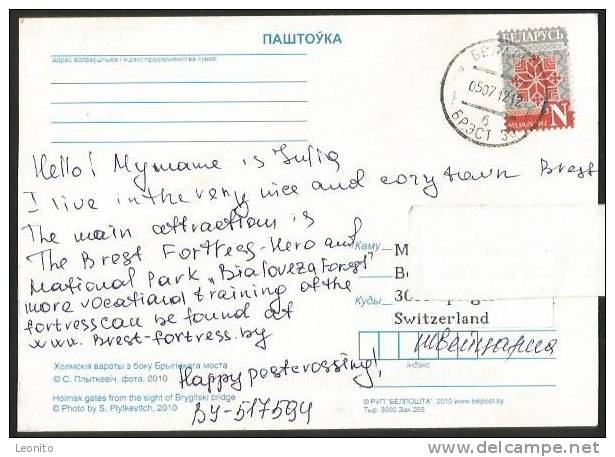 ПАШТОЎКА
адрас адпраўшчыка і індэкс прадпрыемства сувязі
БЕЛАРУСЬ
050712 12
б
БРЭСТ
N
Hello! My name is Julia
I live in the very nice and cozy town Brest
The main attraction is
The Brest Fortress-Hero and
National Park "Bialoveza Forest"
more vocational training of the
fortress can be found at
www. Brest-fortress.by
Happy postcrossing!
BY-517594
Каму
M
Куды
Switzerland
Швейцария
індэкс
Холмскія вароты з боку Брыгіцкага моста
© С. Плыткевіч, фота, 2010
Holmsk gates from the sight of Brygitski bridge
© Photo by S. Plytkevitch, 2010
© РУП "БЕЛПОШТА", 2010 www.belpost.by
Тыр. 3000 Зак. 265
Leonito
delcampe.net